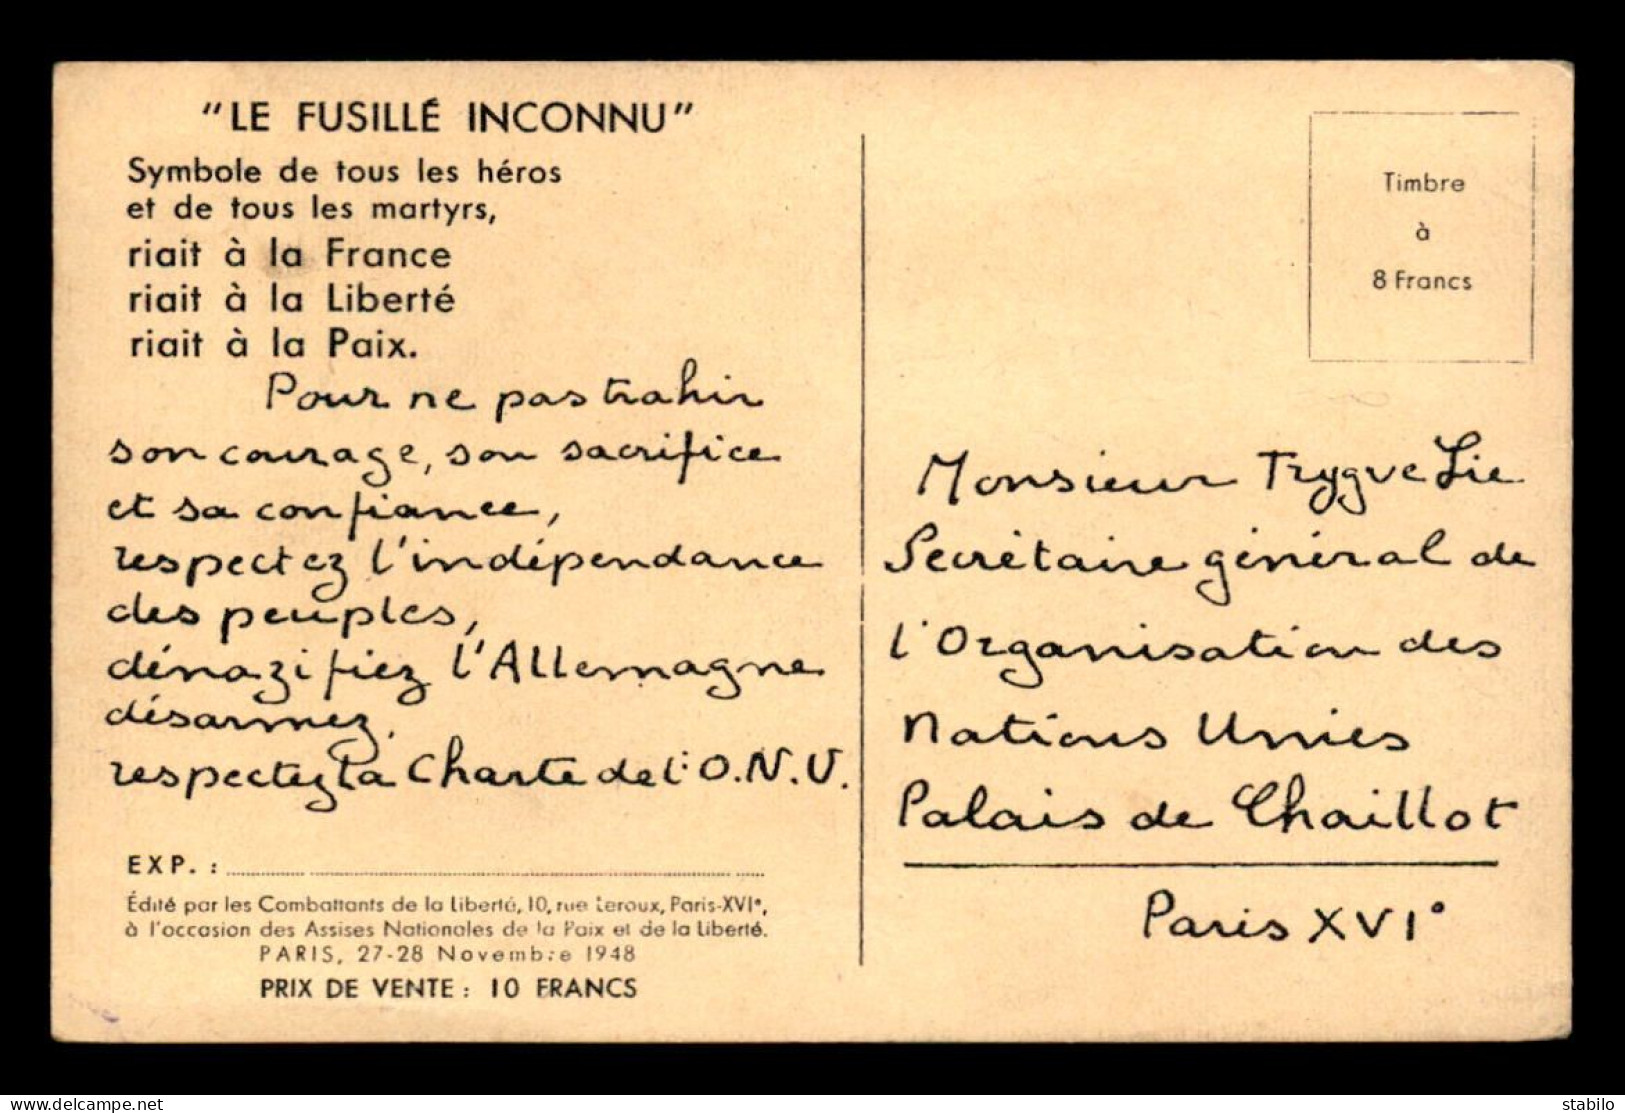 "LE FUSILLÉ INCONNU"
Symbole de tous les héros
et de tous les martyrs,
riait à la France
riait à la Liberté
riait à la Paix.
Pour ne pas trahir
son courage, son sacrifice
et sa confiance,
respectez l'indépendance
des peuples,
dénazifiez l'Allemagne
désarmez,
respectez la Charte de l'O.N.U.
EXP. :
Édité par les Combattants de la Liberté, 10, rue Leroux, Paris-XVIe,
à l'occasion des Assises Nationales de la Paix et de la Liberté.
PARIS, 27-28 Novembre 1948
PRIX DE VENTE : 10 FRANCS
Timbre
à
8 Francs
Monsieur Trygve Lie
Secrétaire général de
l'Organisation des
Nations Unies
Palais de Chaillot
Paris XVI°
www.delcampe.net
stabilo